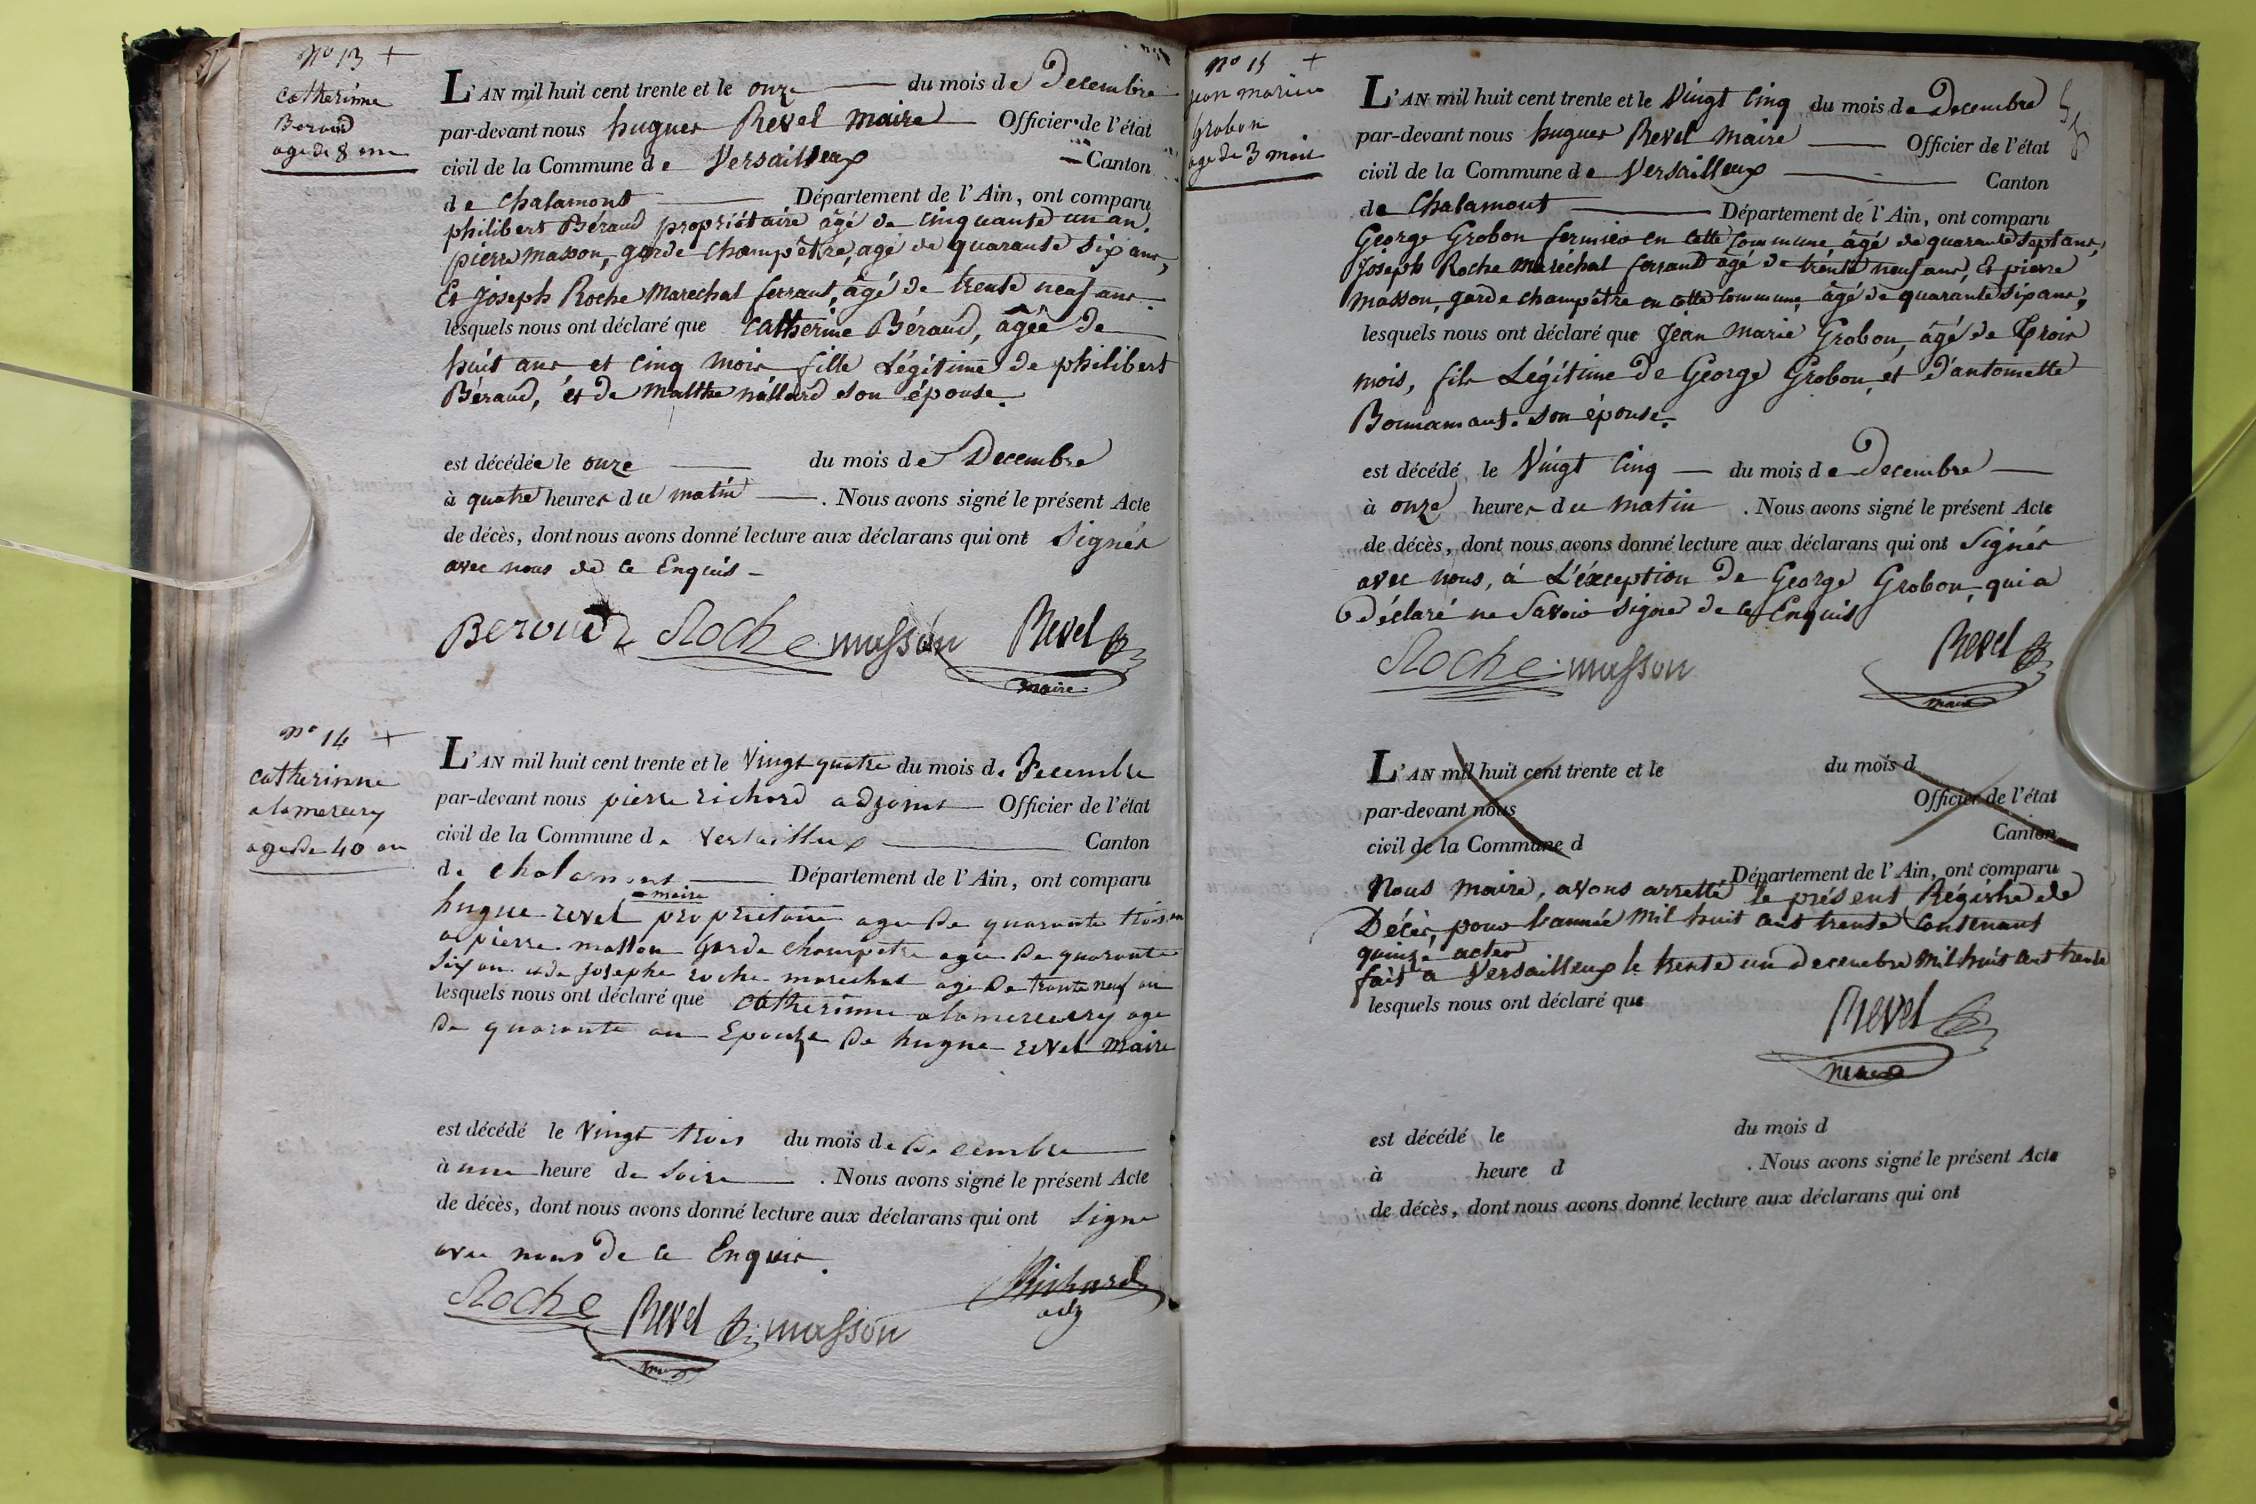 No 13 +
Catherinne
Beroud
age de 8 an
L'AN mil huit cent trente et le onze du mois de Decembre
par-devant nous hugues Revel Maire Officier de l'état
civil de la Commune de Versailleux Canton
de Chalamont Département de l'Ain, ont comparu
philibert Béraud propriétaire âgé de cinquante un an,
pierre masson, garde champêtre, agé de quarante six ans,
Et Joseph Roche Marechal ferrant, âgé de trente neuf ans
lesquels nous ont déclaré que Catherine Béraud, âgée de
huit ans et cinq mois fille Légitime de philibert
Béraud, et de Malthe son épouse.
est décédée le onze du mois de Decembre
à quatre heures du matin . Nous avons signé le présent Acte
de décès, dont nous avons donné lecture aux déclarans qui ont Signés
avec nous de ce Enquis
Beroud Roche masson Revel
maire
No 14 +
Catherinne
alamercery
age de 40 an
L'AN mil huit cent trente et le Vingt quatre du mois de Decembre
par-devant nous pierre richard adjoint Officier de l'état
civil de la Commune de Versailleux Canton
de Chalamont Département de l'Ain, ont comparu
maire
hugue revel propriétaire age de quarante trois an
a pierre masson garde champetre age de quarante
six an et de josephe roche marechal age de trante neuf an
lesquels nous ont déclaré que Catherinne alamercery age
de quarante an Epouze de hugue revel maire
est décédé le Vingt trois du mois de Decembre
à une heure de Soire . Nous avons signé le présent Acte
de décès, dont nous avons donné lecture aux déclarans qui ont Signe
avec nous de ce Enquis.
Roche Revel masson Richard
adj
No 15 +
jean marie
Grobon
age de 3 mois
L'AN mil huit cent trente et le Vingt Cinq du mois de Decembre
par-devant nous hugues Revel Maire Officier de l'état
civil de la Commune de Versailleux Canton
de Chalamont Département de l'Ain, ont comparu
George Grobon fermier en cette Commune âgé de quarante sept ans,
Joseph Roche Maréchal ferrand agé de trente neuf ans, Et pierre
masson, garde champêtre en cette Commune âgé de quarante six ans,
lesquels nous ont déclaré que Jean Marie Grobon, âgé de Trois
mois, fils Légitime de George Grobon, et d'antoinette
Bonnamant son épouse.
est décédé le Vingt Cinq du mois de Decembre
à onze heures du matin . Nous avons signé le présent Acte
de décès, dont nous avons donné lecture aux déclarans qui ont Signés
avec nous, à L'éxception de George Grobon, qui a
déclaré ne Savoir signer de ce Enquis
Roche masson Revel
maire
L'AN mil huit cent trente et le du mois d
par-devant nous Officier de l'état
civil de la Commune d Canton
Département de l'Ain, ont comparu
Nous Maire, avons arretté le présent Régistre de
Décès, pour l'année mil huit cent trente Contenant
quinze actes
fait a Versailleux le trente un decembre mil huit cent trente
lesquels nous ont déclaré que
Revel
maire
est décédé le du mois d
à heure d . Nous avons signé le présent Acte
de décès, dont nous avons donné lecture aux déclarans qui ont